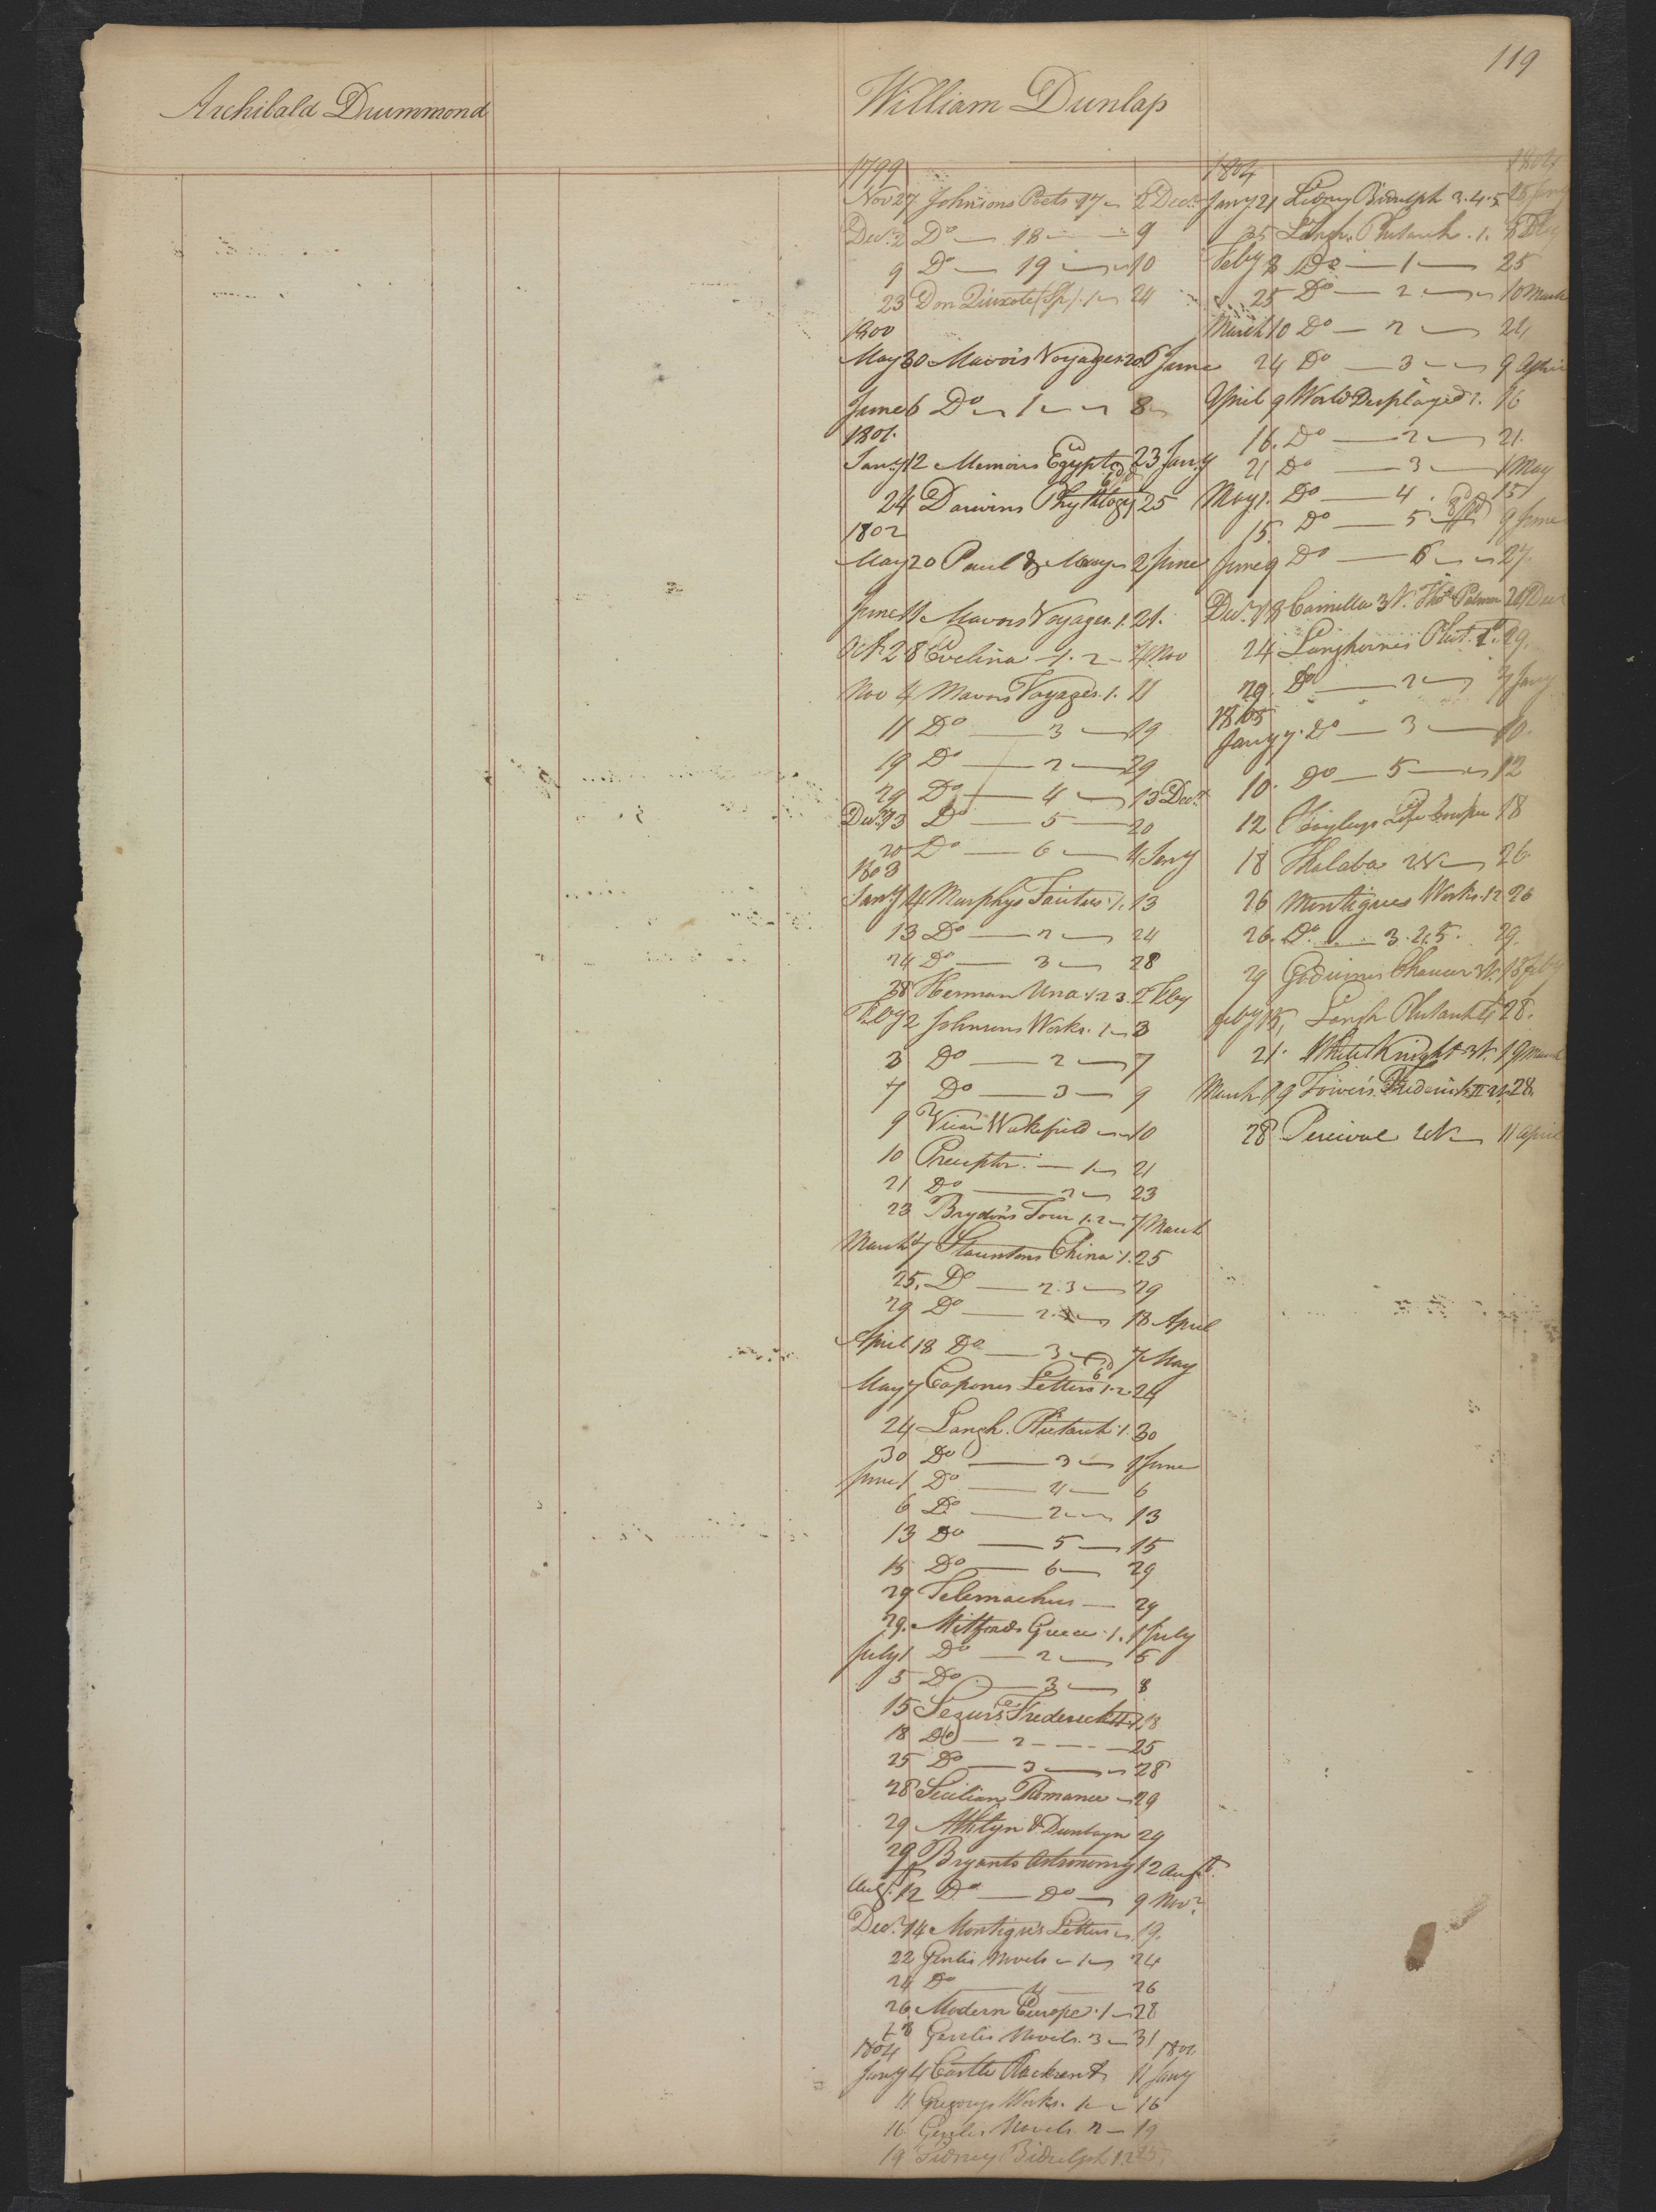 119
Archibald Drummond
William Dunlap
1799
Nov 27 Johnsons Poets 17 2 Decr
Decr 2 Do 18 9
9 Do 19 10
23 Don Quixote (Sp) 1 24
1800
May 30 Mavors Voyages 20 6 June
June 6 Do 1 8
1801
Jany 12 Memoirs Egypt 23 Jany
24 Darwins Phytology 25
1802
May 20 Paul & Mary 2 June
June 11 Mavors Voyages 1. 21.
Oct 28 Evelina 1. 2 4 Nov
Nov 4 Mavors Voyages 1. 11
11 Do 3 19
19 Do 2 29
29 Do 4 13 Decr
Decr 13 Do 5 20
20 Do 6 4 Jany
1803
Jany 4 Murphys Tacitus 1. 13
13 Do 2 24
24 Do 3 28
28 Herman Una 1.2.3. 2 Feby
Feby 2 Johnsons Works. 1 3
3 Do 2 7
7 Do 3 9
9 Vicar Wakefield 10
10 Preceptor 1 21
21 Do 2 23
23 Brydons Tour 1.2 7 March
March 7 Stauntons China 1. 25
25. Do 2.3 29
29 Do 2. 18 April
April 18 Do 3 7 May
May 7 Capones Letters 1.2 24
24 Langh. Plutarch 1. 30
30 Do 3 1 June
June 1 Do 4 6
6 Do 2 13
13 Do 5 15
15 Do 6 29
29 Telemachus 29
29. Mitfords Greece 1. 1 July
July 1 Do 2 5
5 Do 3 8
15 Segurs Frederick II 1. 18
18 Do 2 25
25 Do 3 28
28 Sicilian Romance 29
29 Athlyn & Dunbayn 29
29 Bryants Astronomy 12 Augt.
Augt. 12 Do Do 9 Novr
Decr. 14 Montigus Letters 19.
22 Genlis Novels 1 24
24 Do 4 26
26 Modern Europe 1 28
28 Genlis Novels. 3 31
1804 1804
Jany 4 Castle Rackrent 11 Jany
11 Gregorys Works. 1 16
16 Genlis Novels 2 19
19 Sidney Bidulph 1.2 25
1804 1804
Jany 21 Sidny Bidulph 3.4.5 25 Jany
25 Langh. Plutarch. 1. 8 Feby
Feby 8 Do 1 25
25 Do 2 10 March
March 10 Do 2 24
24 Do 3 9 April
April 9 World Displayed 1. 16
16. Do 2 21.
21 Do 3 1 May
May 1. Do 4. 15
15. Do 5 9 June
June 9 Do 6 27.
Decr. 18 Camilla 3V. Thos Palmer 24 Decr
24 Langhornes Plut. 1. 29.
29. Do 2 7 Jany
1805
Jany 7. Do 3 10.
10. Do 5 12
12 Hayleys Life Cowper 18
18 Thalaba 2V 26
26 Montigues Works. 1 2 26
26. Do 3. 4. 5. 29.
29 Godwins Chaucer 3V. 18 Feby
Feby 18, Langh Plutarch 4 28.
21. White Knight 3V. 19 March
March 19 Towers Frederick II 2V. 28.
28 Percival 2V 11 April